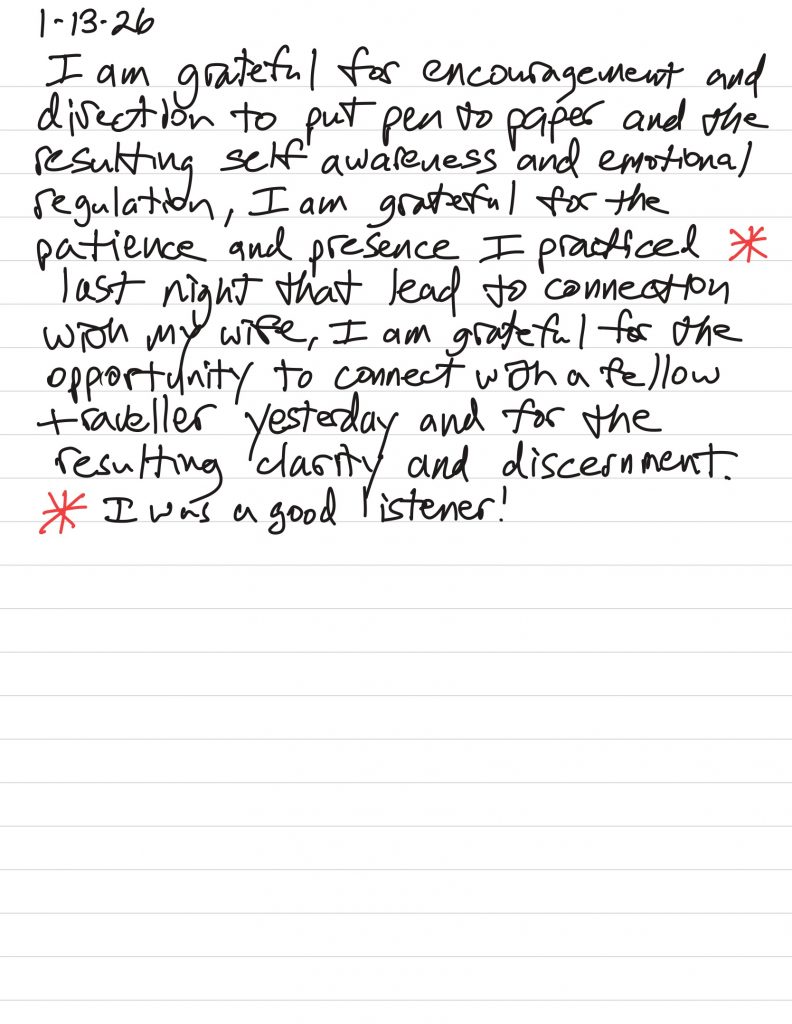 1-13-26
I am grateful for encouragement and
direction to put pen to paper and the
resulting self awareness and emotional
regulation, I am grateful for the
patience and presence I practiced *
last night that lead to connection
with my wife, I am grateful for the
opportunity to connect with a fellow
traveller yesterday and for the
resulting clarity and discernment.
* I was a good listener!